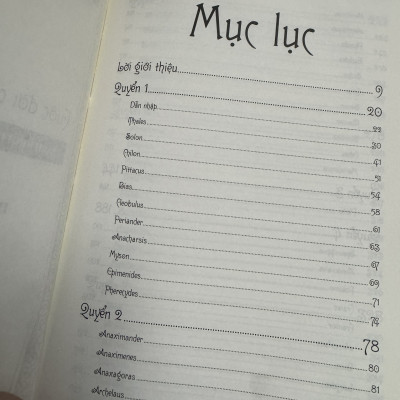 Mục lục
Lời giới thiệu 9
Quyển 1 20
Dẫn nhập 23
Thales 30
Solon 41
Chilon 51
Pittacus 54
Bias 58
Cleobulus 61
Periander 63
Anacharsis 67
Myson 69
Epimenides 71
Pherecydes 74
Quyển 2 78
Anaximander 80
Anaximenes 81
Anaxagoras
Archelaus